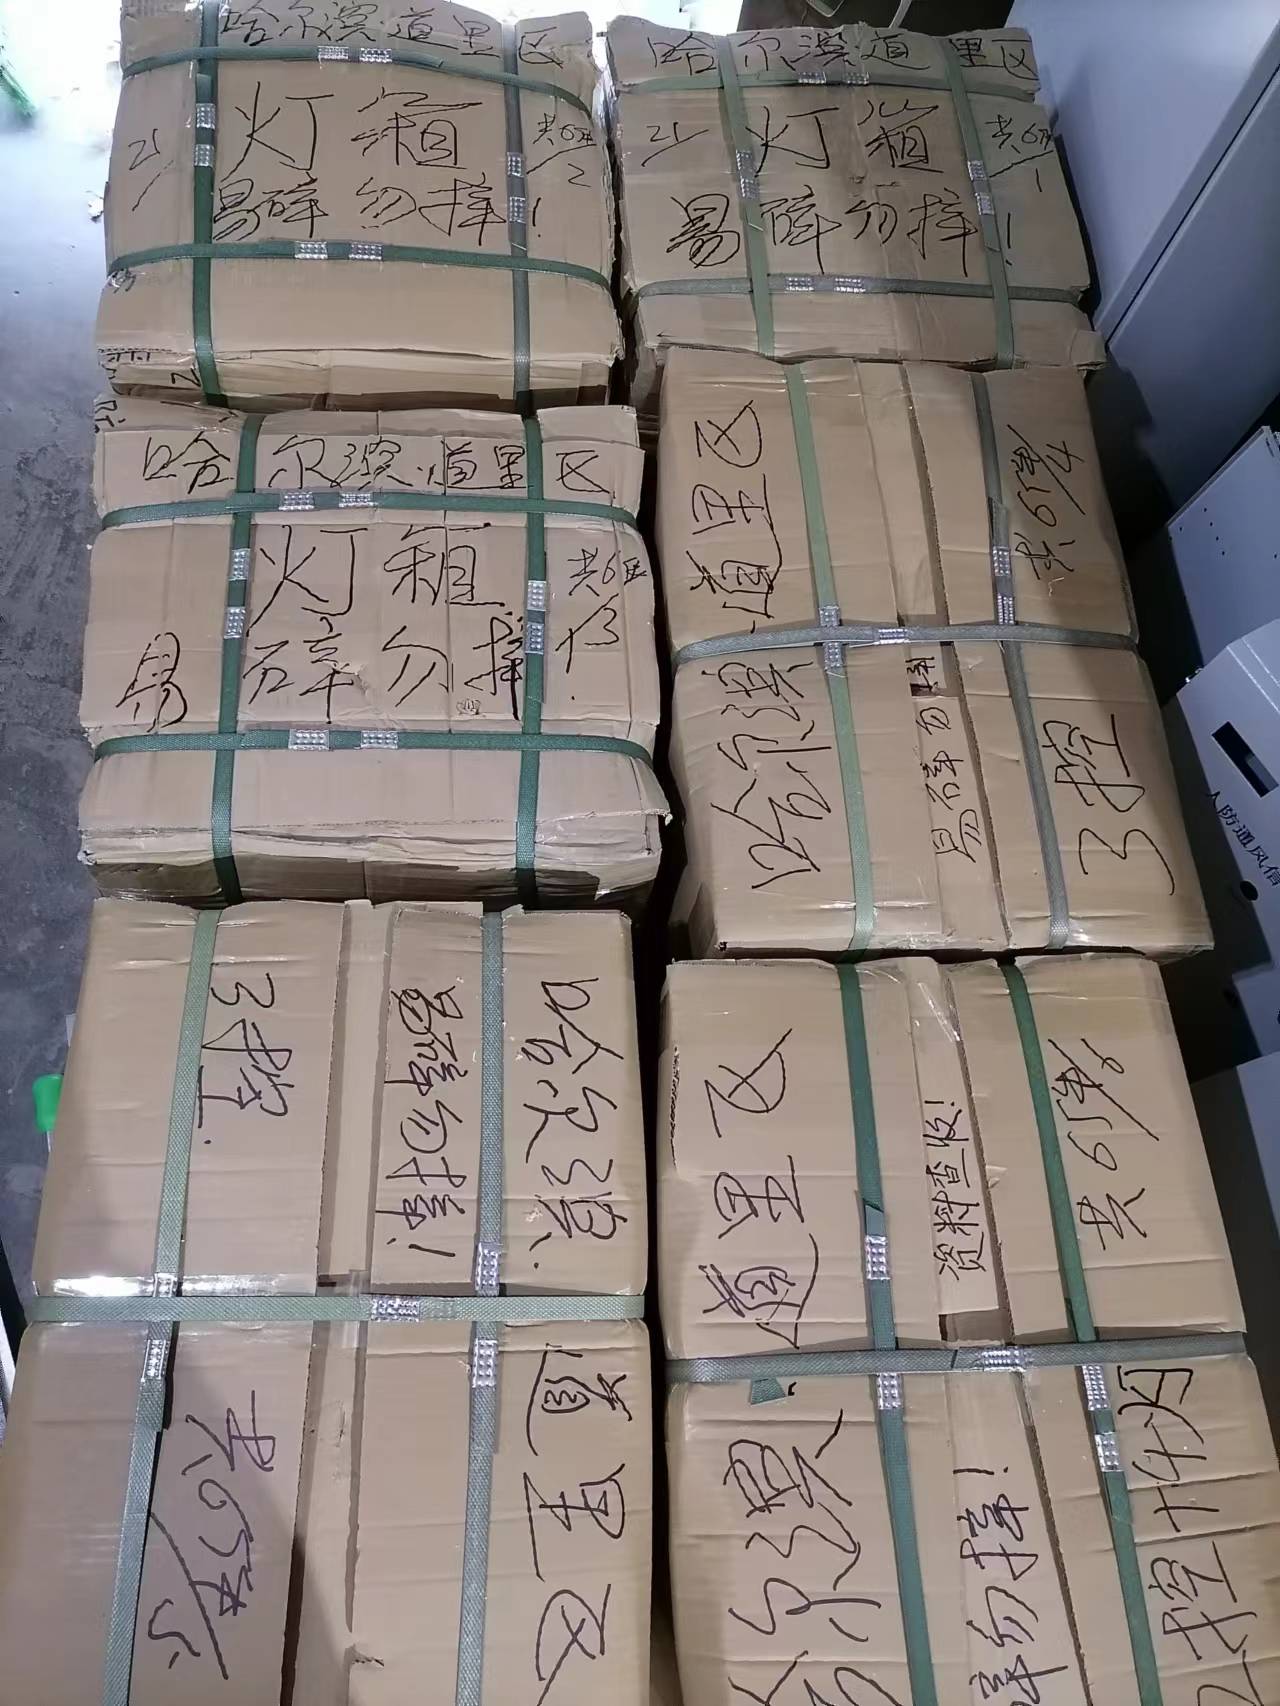 哈尔滨道里区
21
灯箱
共6件
2
易碎勿摔!
哈尔滨道里区
21
灯箱
共6件
1
易碎勿摔!
哈尔滨道里区
灯箱
共6件
3
易碎勿摔!
哈尔滨道里区
易碎勿摔
3控
共6件/4
哈尔滨
道里区
易碎勿摔!
3控
共6件/5
哈尔滨道里区
资料查收!
碎勿摔!
共6件/6
2控
人防通风信